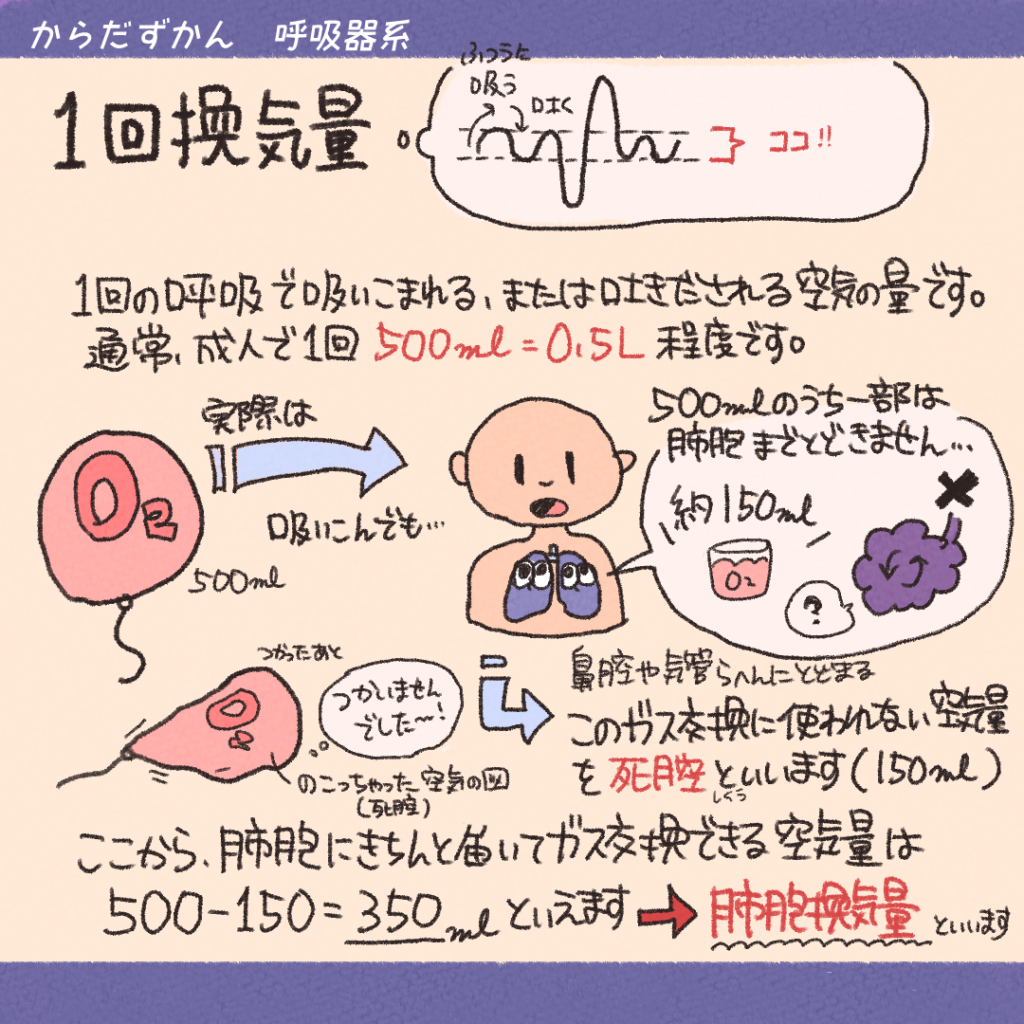 からだずかん 呼吸器系
1回換気量
ふつうに
吸う
吐く
ココ!!
1回の呼吸で吸いこまれる、または吐きだされる空気の量です。
通常、成人で1回 500ml=0.5L 程度です。
実際は
吸いこんでも…
O2
500ml
500mlのうち一部は
肺胞までとどきません…
約150ml
O2
?
つかったあと
O2
つかいません
でした〜!
のこっちゃった空気の図
(死腔)
鼻腔や気管らへんにとどまる
このガス交換に使われない空気量
を死腔といいます(150ml)
しくう
ここから、肺胞にきちんと届いてガス交換できる空気量は
500-150=350mlといえます→肺胞換気量といいます